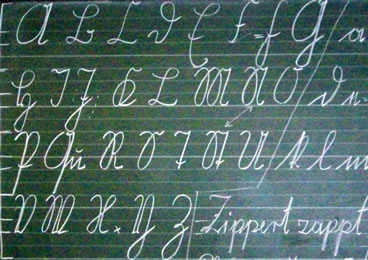 A B C D E F=f G a
H I J K L M N O d n=
P Qu R S T St U k l m
V W X. Y Z Zippert zappt